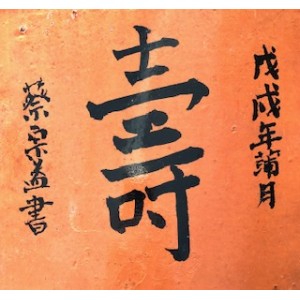 戊戌年蒲月
壽
蔡宗孟書